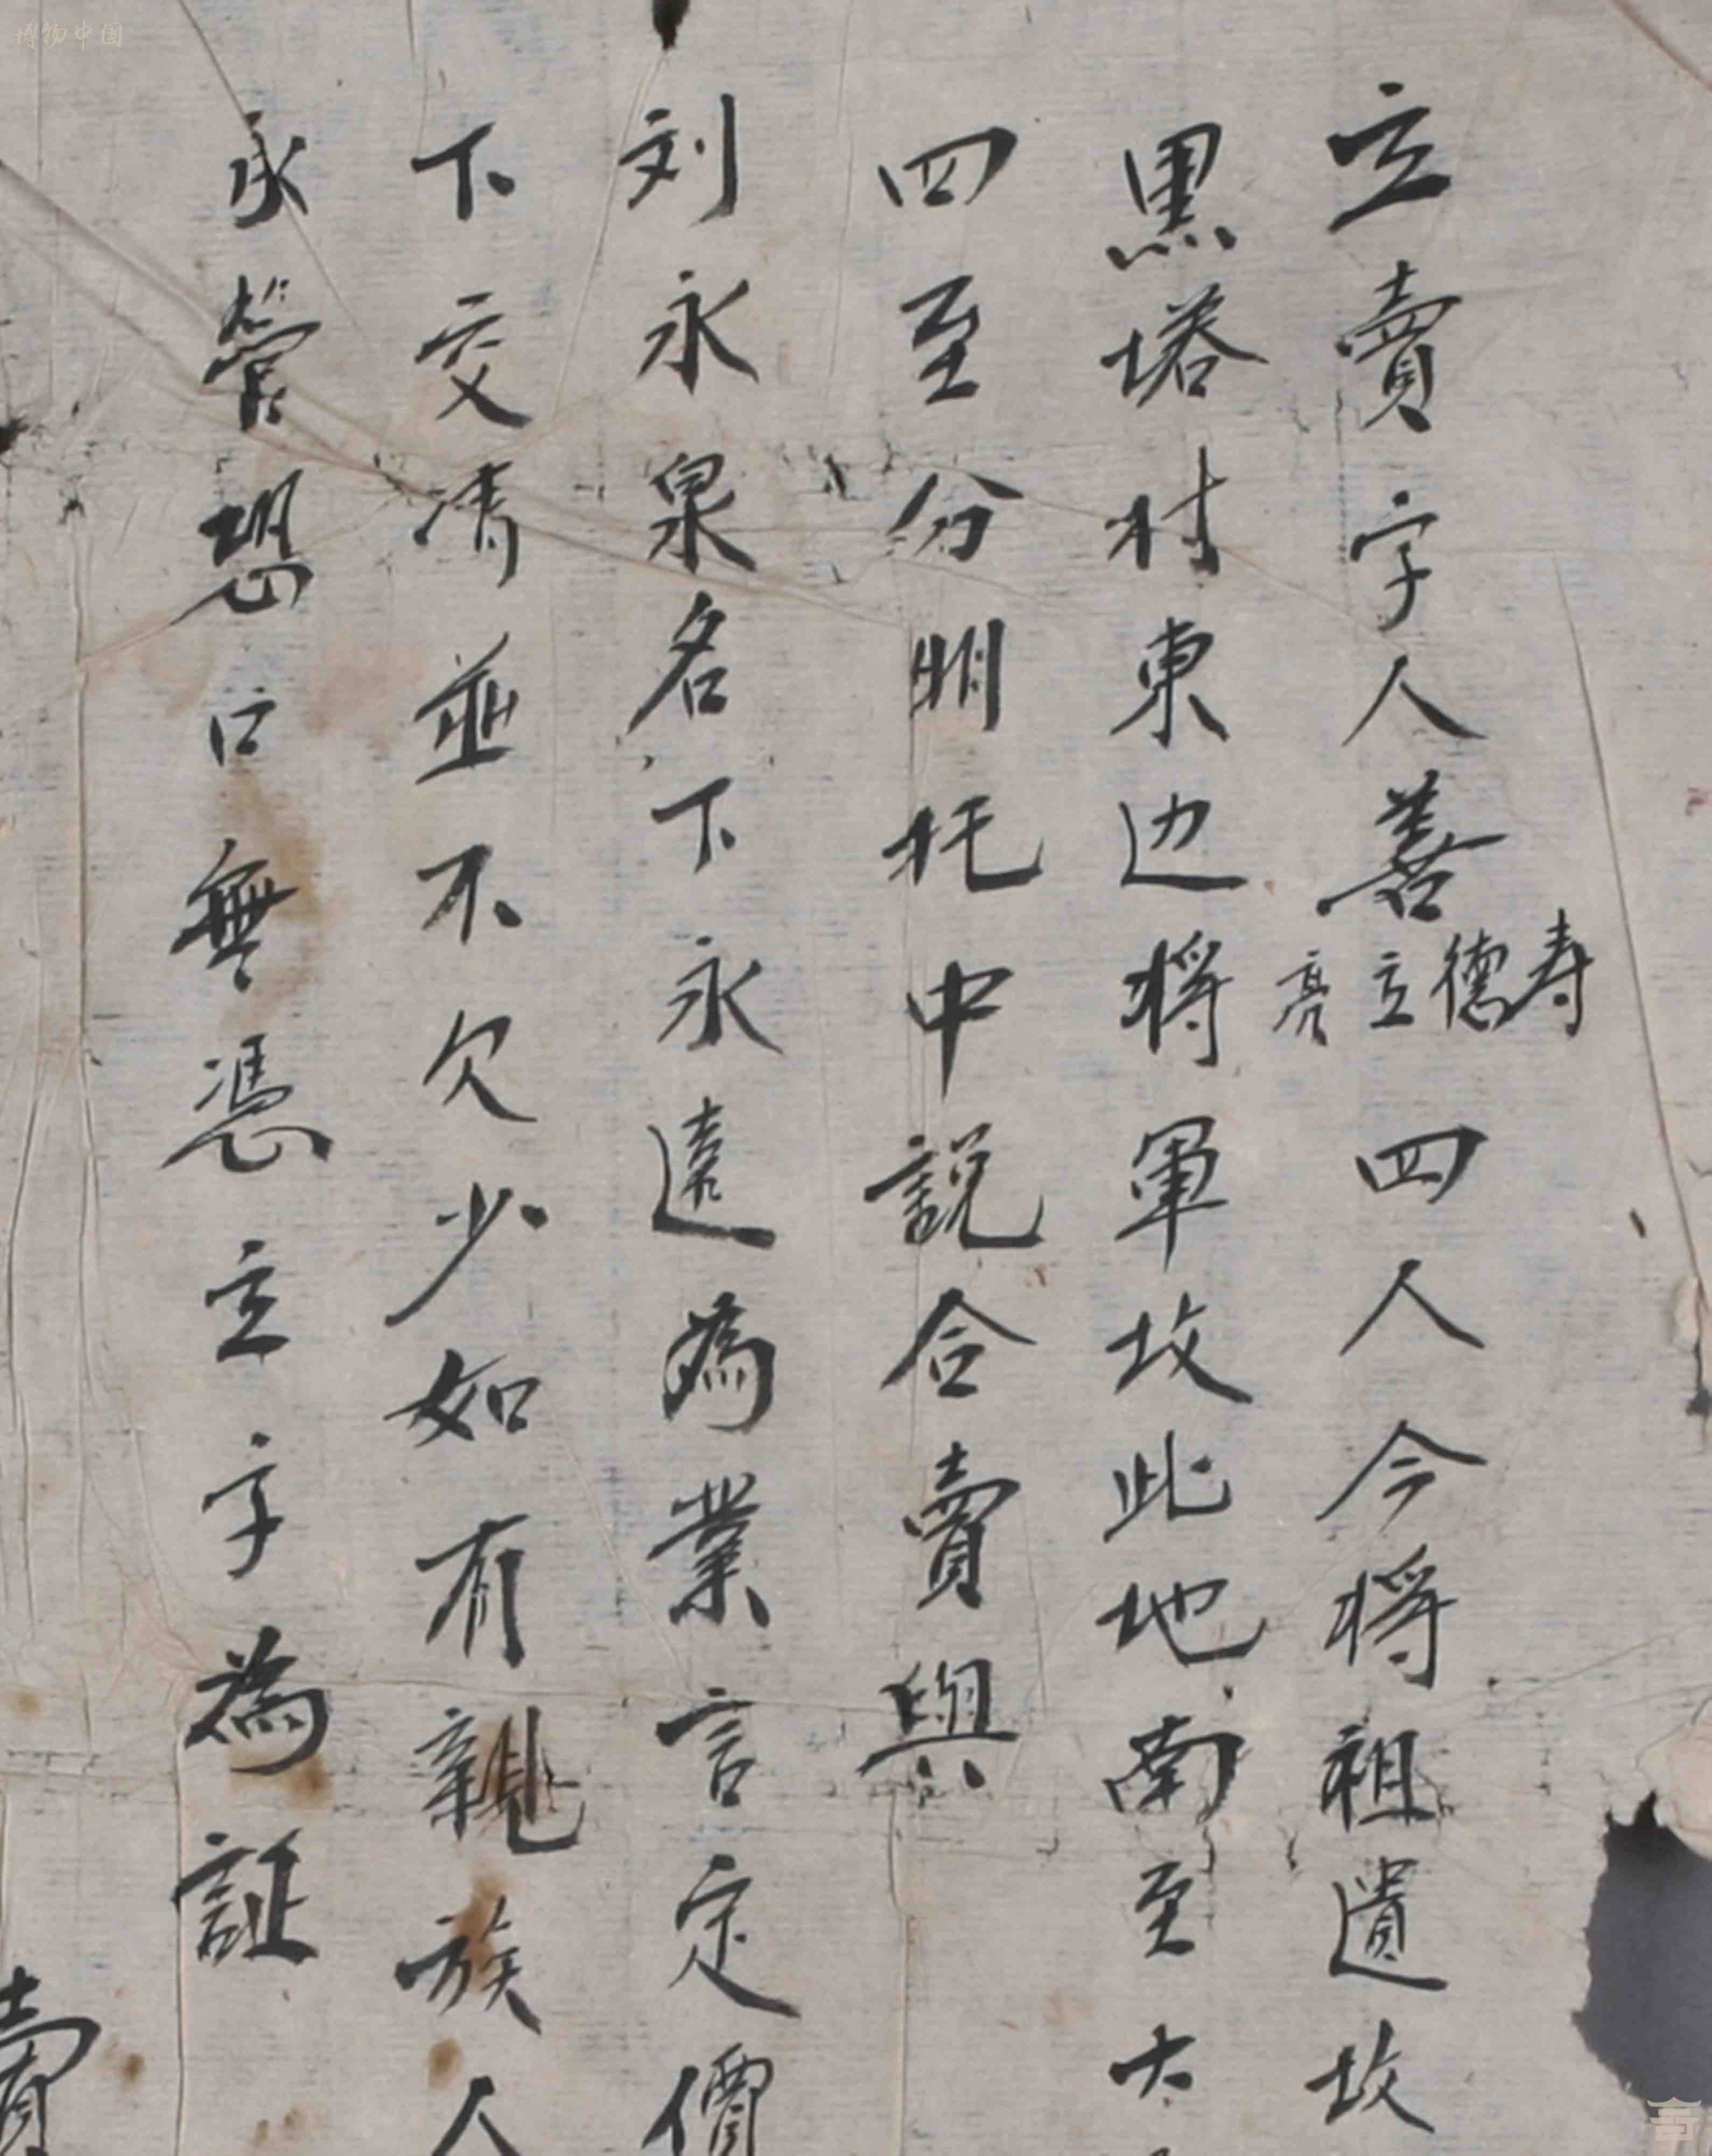 立賣字人善寿德立亮四人今将祖遺坟
黒塔村東边将軍坟此地南至大
四至分明托中説合賣與
刘永泉名下永遠為業言定價
下交清並不欠少如有親族人
承管恐口無憑立字為証
賣
博物中國